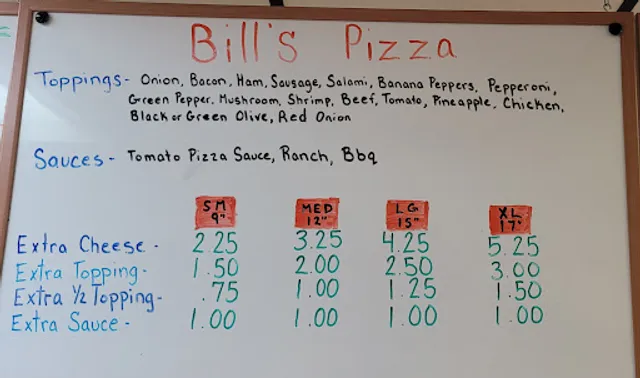 Bill's Pizza
Toppings - Onion, Bacon, Ham, Sausage, Salami, Banana Peppers, Pepperoni,
Green Pepper, Mushroom, Shrimp, Beef, Tomato, Pineapple, Chicken,
Black or Green Olive, Red Onion
Sauces - Tomato Pizza Sauce, Ranch, Bbq
SM MED LG XL
9" 12" 15" 17"
Extra Cheese - 2.25 3.25 4.25 5.25
Extra Topping - 1.50 2.00 2.50 3.00
Extra ½ Topping - .75 1.00 1.25 1.50
Extra Sauce - 1.00 1.00 1.00 1.00